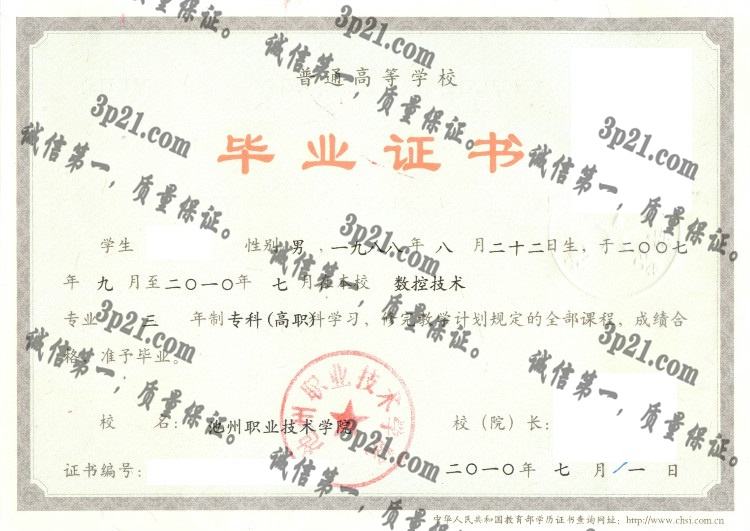 普通高等学校
毕业证书
学生 性别 男 ,一九八八年 八 月二十二日生,于二〇〇七
年 九 月至二〇一〇年 七 月在本校 数控技术
专业 三 年制 专科(高职)科学习,修完教学计划规定的全部课程,成绩合
格,准予毕业。
校 名: 池州职业技术学院 校(院)长:
证书编号: 二〇一〇年 七 月 一 日
中华人民共和国教育部学历证书查询网址:http://www.chsi.com.cn
池州职业技术学院
3p21.com
诚信第一,质量保证。
3p21.com
诚信第一,质量保证。
3p21.com
诚信第一,质量保证。
3p21.com
诚信第一,质量保证。
3p21.com
诚信第一,质量保证。
3p21.com
诚信第一,质量保证。
3p21.com
诚信第一,质量保证。
诚信第一,质量保证。